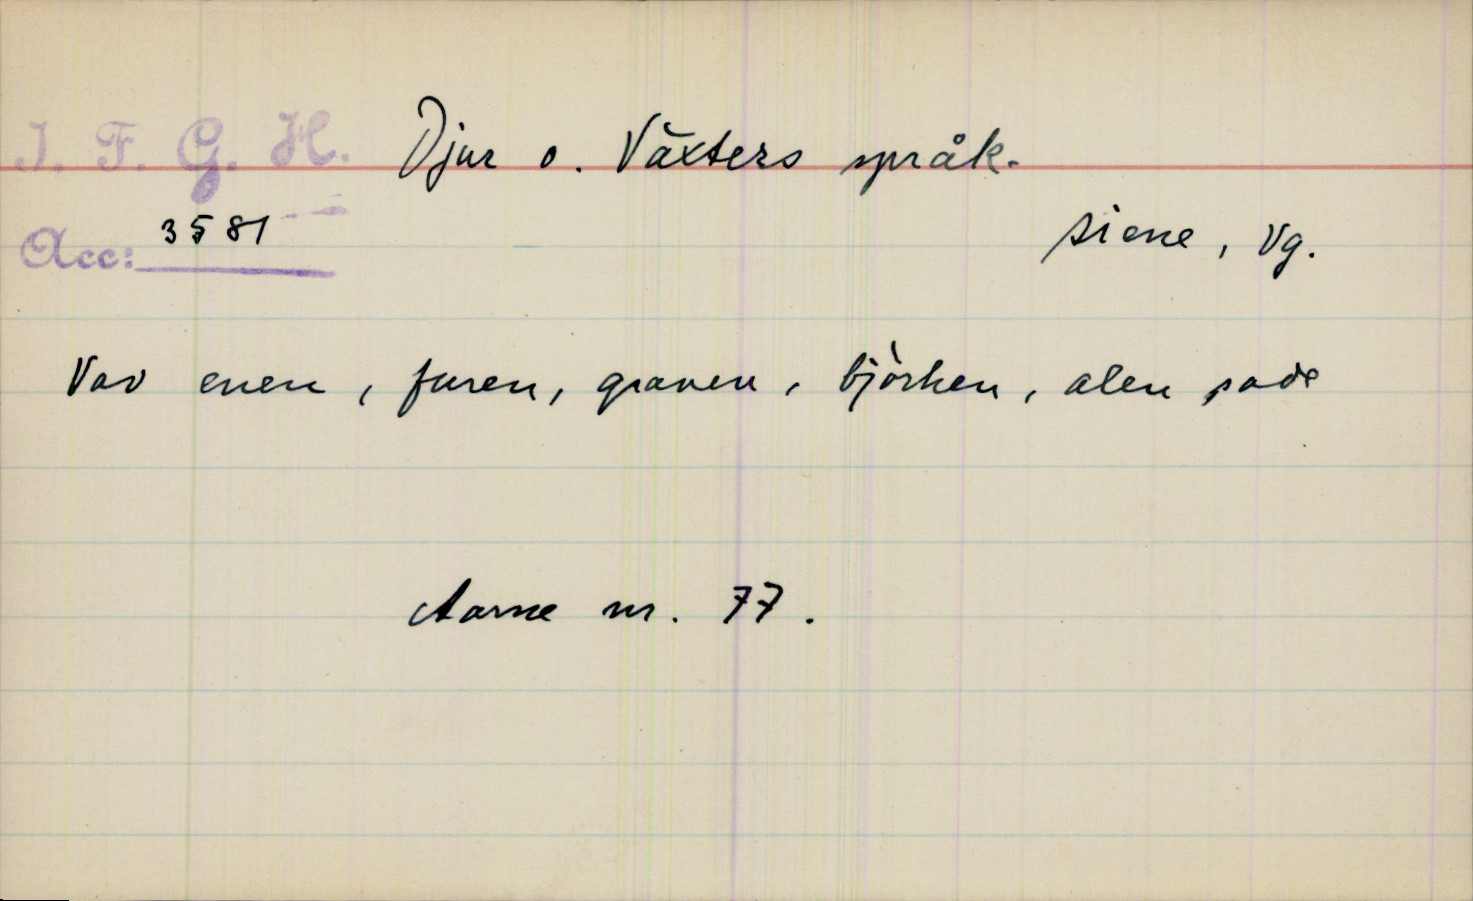 I. F. G. H. Djur o. Växters språk.
Acc: 3581
Siene, Vg.
Vad enen, furen, granen, björken, alen sade
Aarne nr. 77.